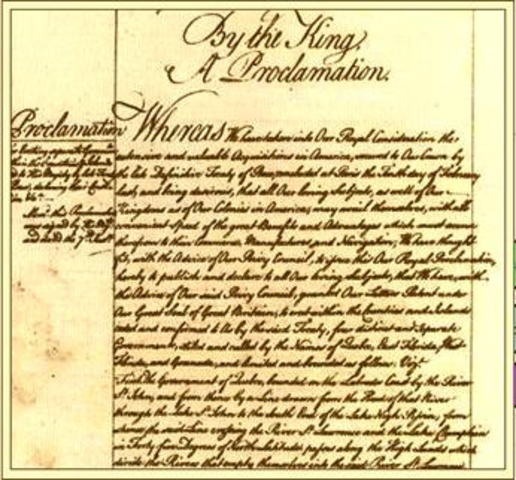 By the King,
A Proclamation.
Proclamation
Whereas We have taken into Our Royal Consideration the
extensive and valuable Acquisitions in America, secured to Our Crown by
the late Definitive Treaty of Peace, concluded at Paris the Tenth day of February
last, and being desirous, that all Our loving Subjects, as well of Our
Kingdoms as of Our Colonies in America, may avail themselves, with all
convenient Speed, of the great Benefits and Advantages which must accrue
therefrom to their Commerce, Manufactures, and Navigation; We have thought
fit, with the Advice of Our Privy Council, to issue this Our Royal Proclamation,
hereby to publish and declare to all Our loving Subjects, that We have, with
the Advice of Our said Privy Council, granted Our Letters Patent under
Our Great Seal of Great Britain, to erect within the Countries and Islands
ceded and confirmed to Us by the said Treaty, four distinct and separate
Governments, stiled and called by the Names of Quebec, East Florida, West
Florida, and Grenada, and limited and bounded as follows; Viz.
First, the Government of Quebec, bounded on the Labrador Coast by the River
St. John, and from thence by a Line drawn from the Head of that River
through the Lake St. John to the South End of the Lake Nigh Pissin; from
whence the said Line crossing the River St. Lawrence and the Lake Champlain
in Forty five Degrees of North Latitude, passes along the High Lands which
divide the Rivers that empty themselves into the said River St. Lawrence